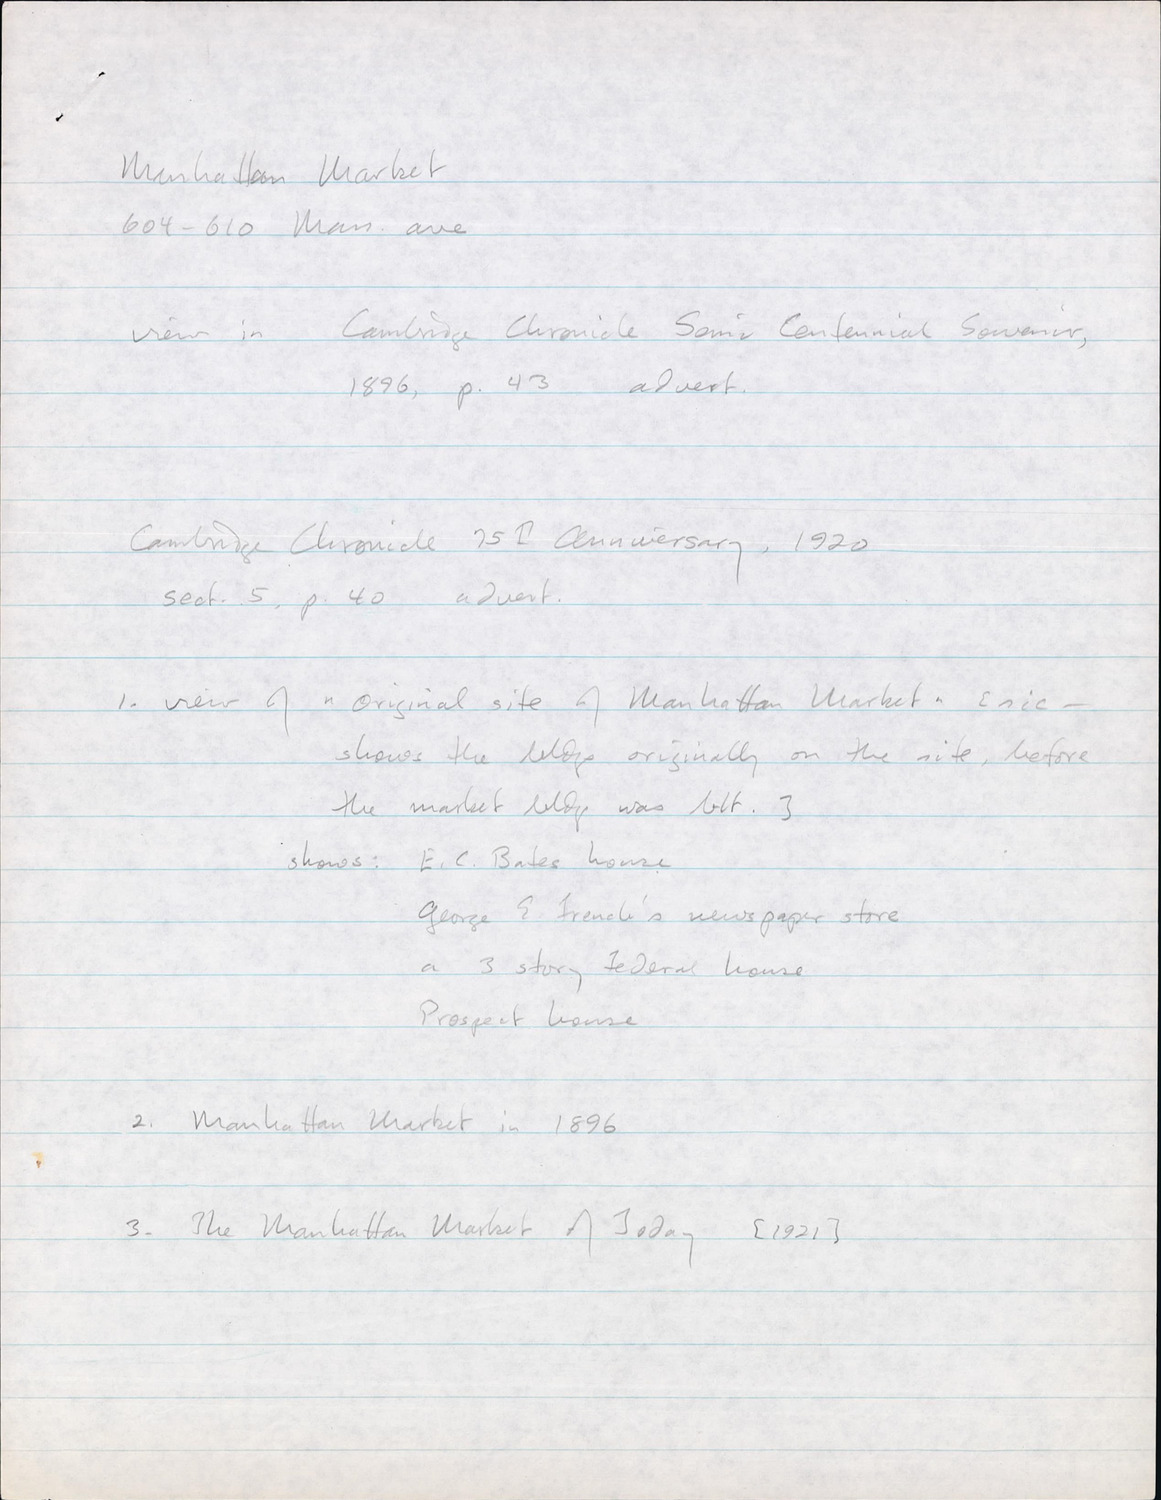 Manhattan Market
604-610 Mass. ave
view in Cambridge Chronicle Semi Centennial Souvenir,
1896, p. 43 advert.
Cambridge Chronicle 75th Anniversary, 1920
sect. 5, p. 40 advert.
1. view of "original site of Manhattan Market" [sic -
shows the bldgs originally on the site, before
the market bldg was blt.]
shows: E. C. Bates house
George E French's newspaper store
a 3 story Federal house
Prospect house
2. Manhattan Market in 1896
3. The Manhattan Market of Today [1921]